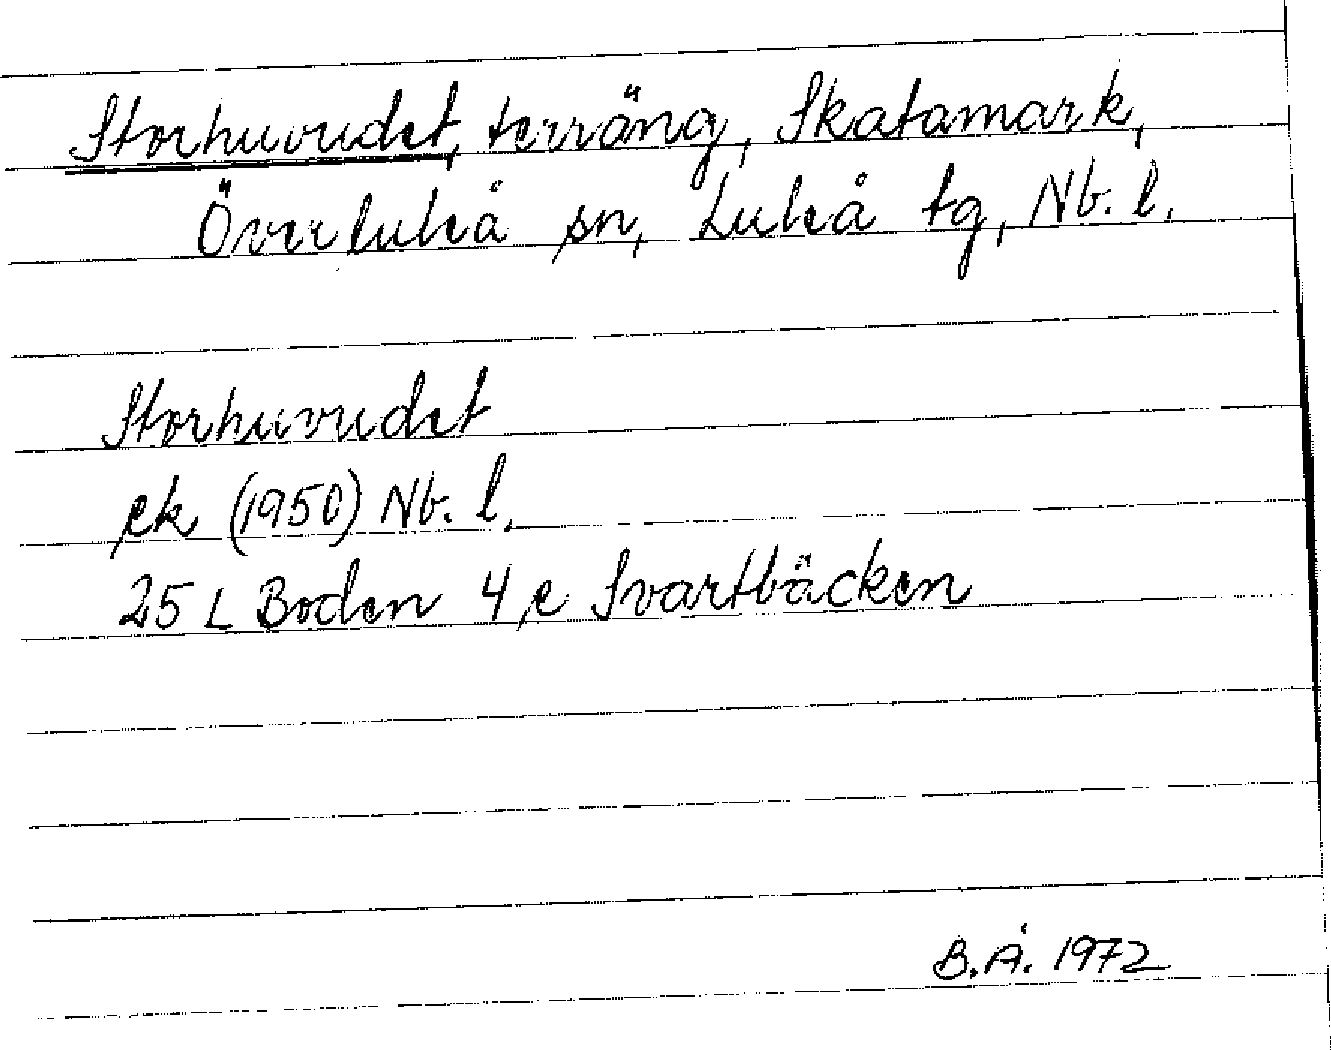 Storhuvudet, terräng, Skatamark,
Överluleå sn, Luleå tg, Nb. l.
Storhuvudet
ek (1950) Nb. l.
25 L Boden 4 e Svartbäcken
B.Å. 1972